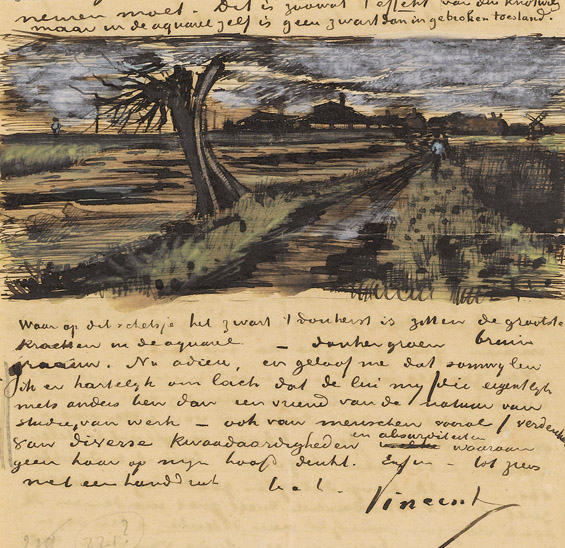 nemen moet. Dit is zoowat 't effekt van den knotwilg
maar in de aquarel zelf is geen zwart dan in gebroken toestand.
Waar op dit schetsje het zwart 't donkerst is zitten de grootste
krachten in de aquarel — donkergroen bruin
graauw. Nu adieu, en geloof me dat somwylen
ik er hartelyk om lach dat de lui my /die eigentlyk
niets anders ben dan een vriend van de natuur van
studie, van werk — ook van menschen vooral/ verdenken
van diverse kwaadaardigheden en absurditeiten waaraan
geen haar op myn hoofd denkt. Enfin — tot ziens
met een handdruk
Vincent
221?